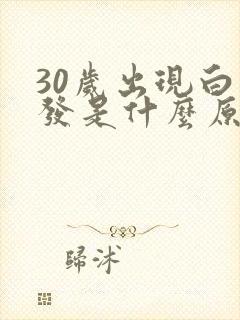 30歲出現白
發是什麼原
歸沭